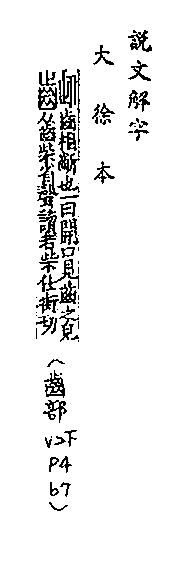 說文解字
大徐本
齜齒相齗也一曰開口見齒之皃
从齒柴省聲讀若柴仕街切
(齒部
V2下
P4
b7)